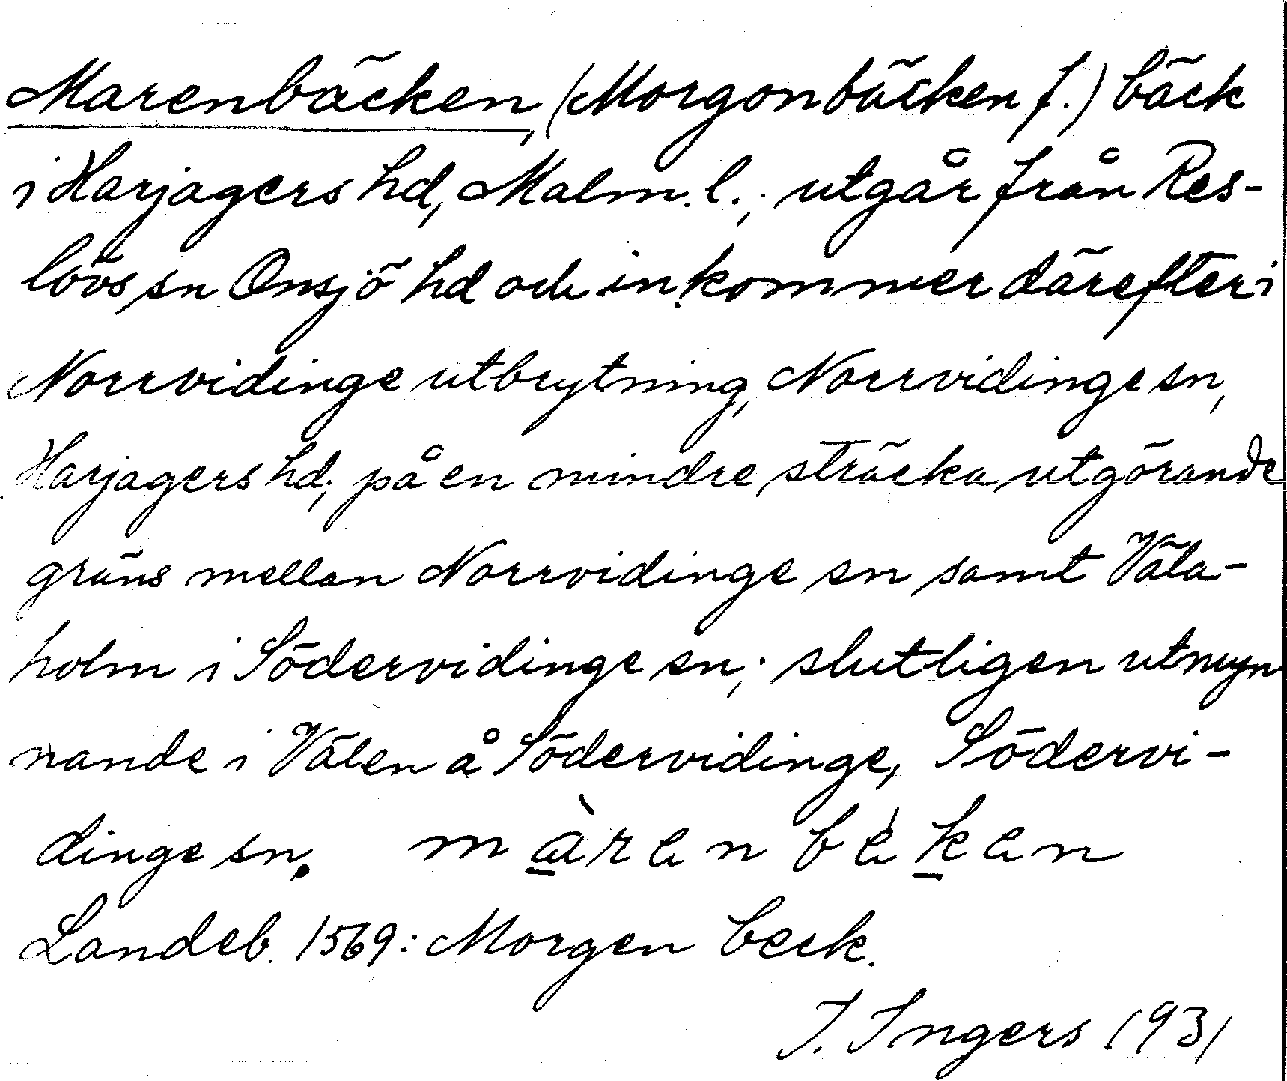 Marenbäcken, (Morgonbäcken f.) bäck
i Harjagers hd, Malm. l.; utgår från Res-
lövs sn Onsjö hd och inkommer därefter i
Norrvidinge utbrytning, Norrvidinge sn,
Harjagers hd; på en mindre sträcka utgörande
gräns mellan Norrvidinge sn samt Väla-
holm i Södervidinge sn; slutligen utmyn
nande i Välen å Södervidinge, Södervi-
dinge sn. màrən bèkən
Landeb. 1569: Morgen beck.
I. Ingers 1931